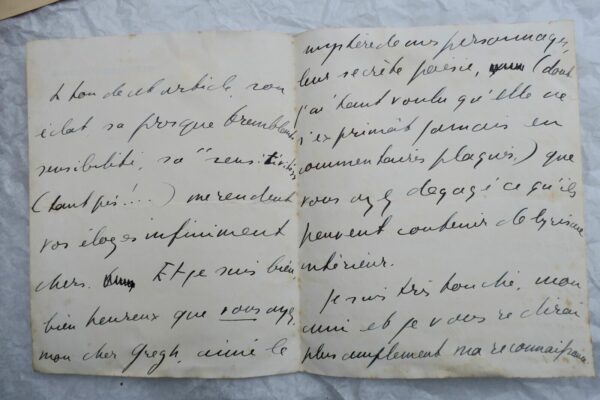 le ton de cet article, son
éclat sa presque tremblante
sensibilité, sa "sensitivité"
(tant pis!...) me rendent
vos éloges infiniment
chers. Et je suis bien,
bien heureux que vous ayez,
mon cher Gregh, aimé le
mystère de mes personnages,
leur secrète poésie, (dont
j'ai tant voulu qu'elle ne
s'exprimât jamais en
commentaires plaqués,) que
vous ayez dégagé ce qu'ils
peuvent contenir de lyrisme
intérieur.
Je suis très touché, mon
ami et je vous redirai
plus amplement ma reconnaissance